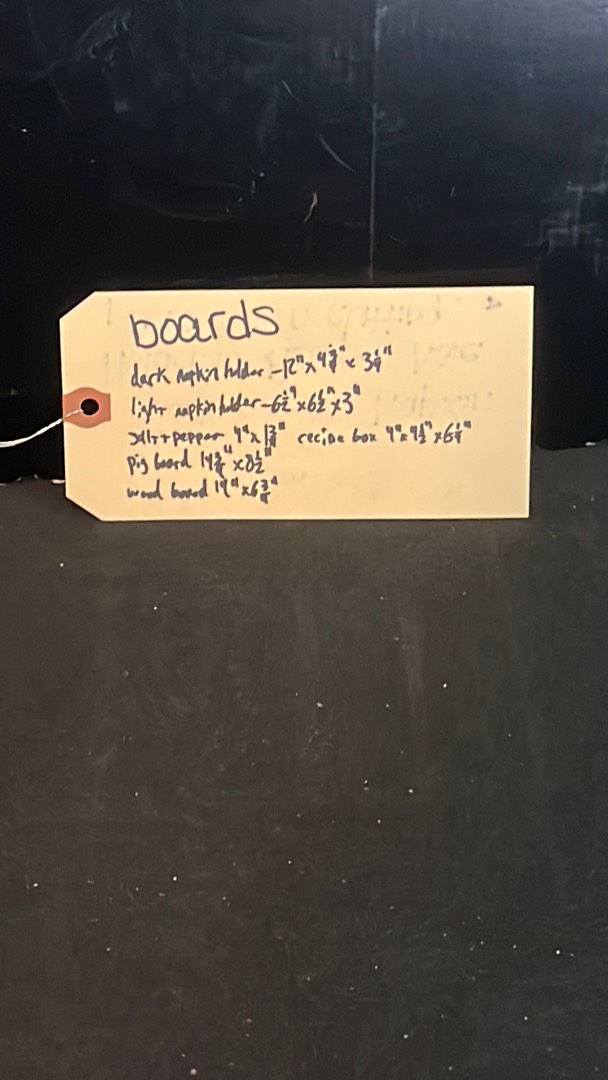 boards
dark napkin holder -12" x 4 3/4" x 3 1/4"
light napkin holder - 6 1/2" x 6 1/2" x 3"
salt + pepper 4" x 1 3/4" recipe box 4" x 4 1/2" x 6 1/4"
pig board 14 3/4" x 8 1/2"
wood board 19" x 6 3/4"